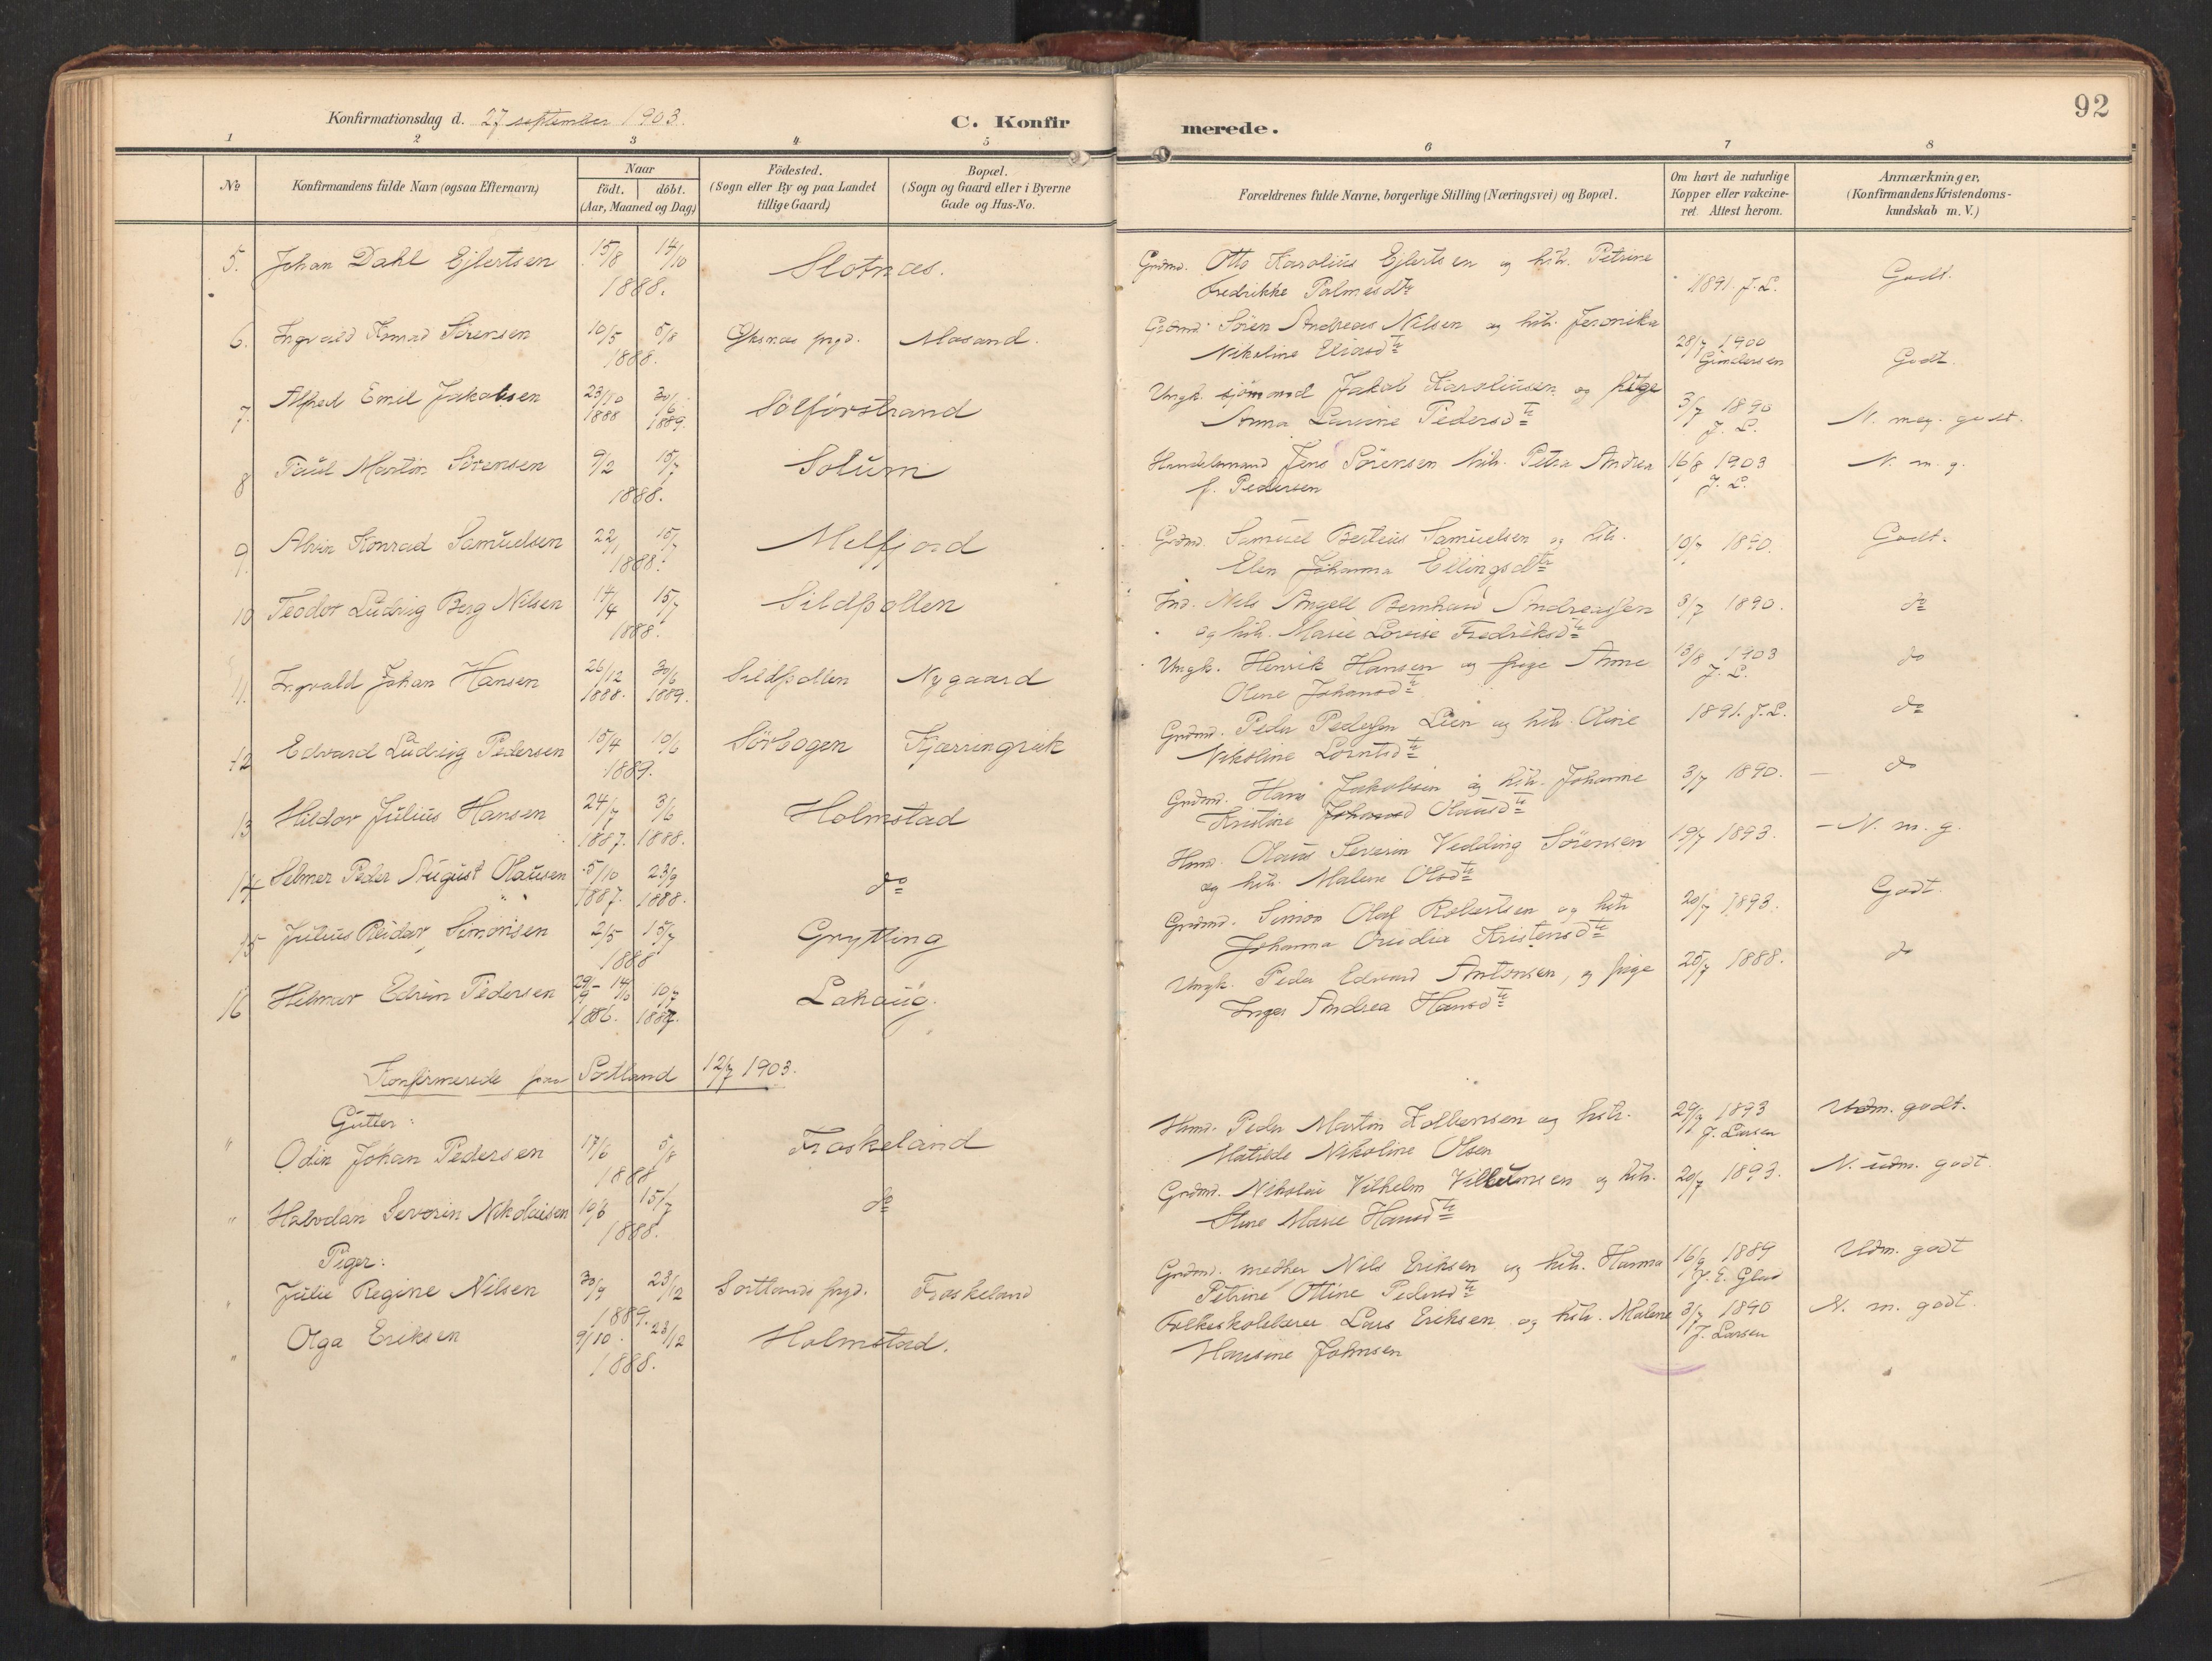 92
Konfirmationsdag d. 27 september 1903.
C. Konfirmerede.
1 2 3 4 5 6 7 8
No
Konfirmandens fulde Navn (ogsaa Efternavn)
Naar
födt. döbt.
(Aar, Maaned og Dag)
Födested.
(Sogn eller By og paa Landet
tillige Gaard)
Bopæl.
(Sogn og Gaard eller i Byerne
Gade og Hus-No.
Forældrenes fulde Navne, borgerlige Stilling (Næringsvei) og Bopæl.
Om havt de naturlige
Kopper eller vakcine-
ret. Attest herom.
Anmærkninger.
(Konfirmandens Kristendoms-
kundskab m. V.)
5. Johan Dahl Ejlertsen 15/8 14/10 1888. Slotnæs.
Grdmd. Otto Karolius Ejlertsen og hstr. Petrine
Fredrikke Palmesdtr 1891. J. L. Godt.
6. Ingvald Konrad Sörensen 10/5 5/8 1888. Öksnæs prgd. Maasand.
Grdmd. Sören Andreas Nilsen og hstr. Jeronika
Nikoline Eliasdtr 28/7 1900 Gundersen Godt.
7. Alfred Emil Jakobsen 23/10 1888 30/6 1889. Sölförstrand
Ungk. sjömand Jakob Karoliusen og pige
Anna Lavine Pedersdtr 3/7 1890 J. L. N. meg. godt.
8 Paul Martin Sörensen 9/2 15/7 1888. Solum
Handelsmand Jens Sörensen hstr. Petra Andrea
f. Pedersen 16/8 1903 J. L. N. m. g.
9. Alvin Konrad Samuelsen 22/1 15/7 1888. Melfjord
Grdmd. Samuel Berteus Samuelsen og hstr.
Elen Johanna Ellingsdtr 10/7 1890. Godt.
10 Teodor Ludvig Berg Nilsen 14/4 15/7 1888. Sildpollen
Ind. Nils Angell Bernhard Andreassen
og hstr. Marie Lovise Fredriksdtr 3/7 1890. do
11. Ingvald Johan Hansen 26/12 1888. 30/6 1889. Sildpollen Nygaard
Ungk. Henrik Hansen og pige Anne
Oline Johansdtr 13/8 1903 J. L. do
12 Edvard Ludvig Pedersen 15/4 10/6 1889. Sörbogen Kjærringvik
Grdmd. Peder Pedersen Lien og hstr. Oline
Nikoline Lorntsdtr 1891. J. L. do
13 Hildor Julius Hansen 24/7 1887. 3/6 1888. Holmstad
Grdmd. Hans Jakobsen og hstr. Johanne
Kristine Johansd Olausdtr 3/7 1890. do
14 Selmer Peder August Olausen 5/10 1887. 23/9 1888. do
Hmd. Olaus Severin Vedding Sörensen
og hstr. Malene Olsdtr 19/7 1893. N. m. g.
15 Julius Reidar Simonsen 2/5 15/7 1888 Grytting
Grdmd. Simon Olaf Robertsen og hstr
Johanna Ovidia Kristensdtr 20/7 1893. Godt.
16 Helmer Edvin Pedersen 29/9 - 14/10 1886. 10/7 1887. Lahaug.
Ungk. Peder Edvard Antonsen, og pige
Inger Andrea Hansdtr 25/7 1888. do
Konfirmerede paa Sortland 12/7 1903.
Gutter:
" Odin Johan Pedersen 17/6 5/8 1888 Fraskeland
Hmd. Peder Martin Tolbensen og hstr.
Matilde Nikoline Olsen 29/7 1893 J. Larsen Udm. godt.
" Halvdan Severin Nikolaisen 10/6 15/7 1888. do
Grdmd. Nikolai Vilhelm Villumsen og hstr.
Stine Marie Hansdtr 20/7 1893. N. udm. godt.
Piger:
" Julie Regine Nilsen 30/9 23/12 1889. Sortlands prgd. Fraskeland
Grdmd. medher Nils Eriksen og hstr. Hanna
Petrine Ottine Pedersdtr 16/9 1889 J. E. Glad Udm. godt
" Olga Eriksen 9/10. 23/12 1888. Holmstad.
Folkeskolelærer Lars Eriksen og hstr. Malene
Hansine Johnsen 3/7 1890 J. Larsen N. m. godt.